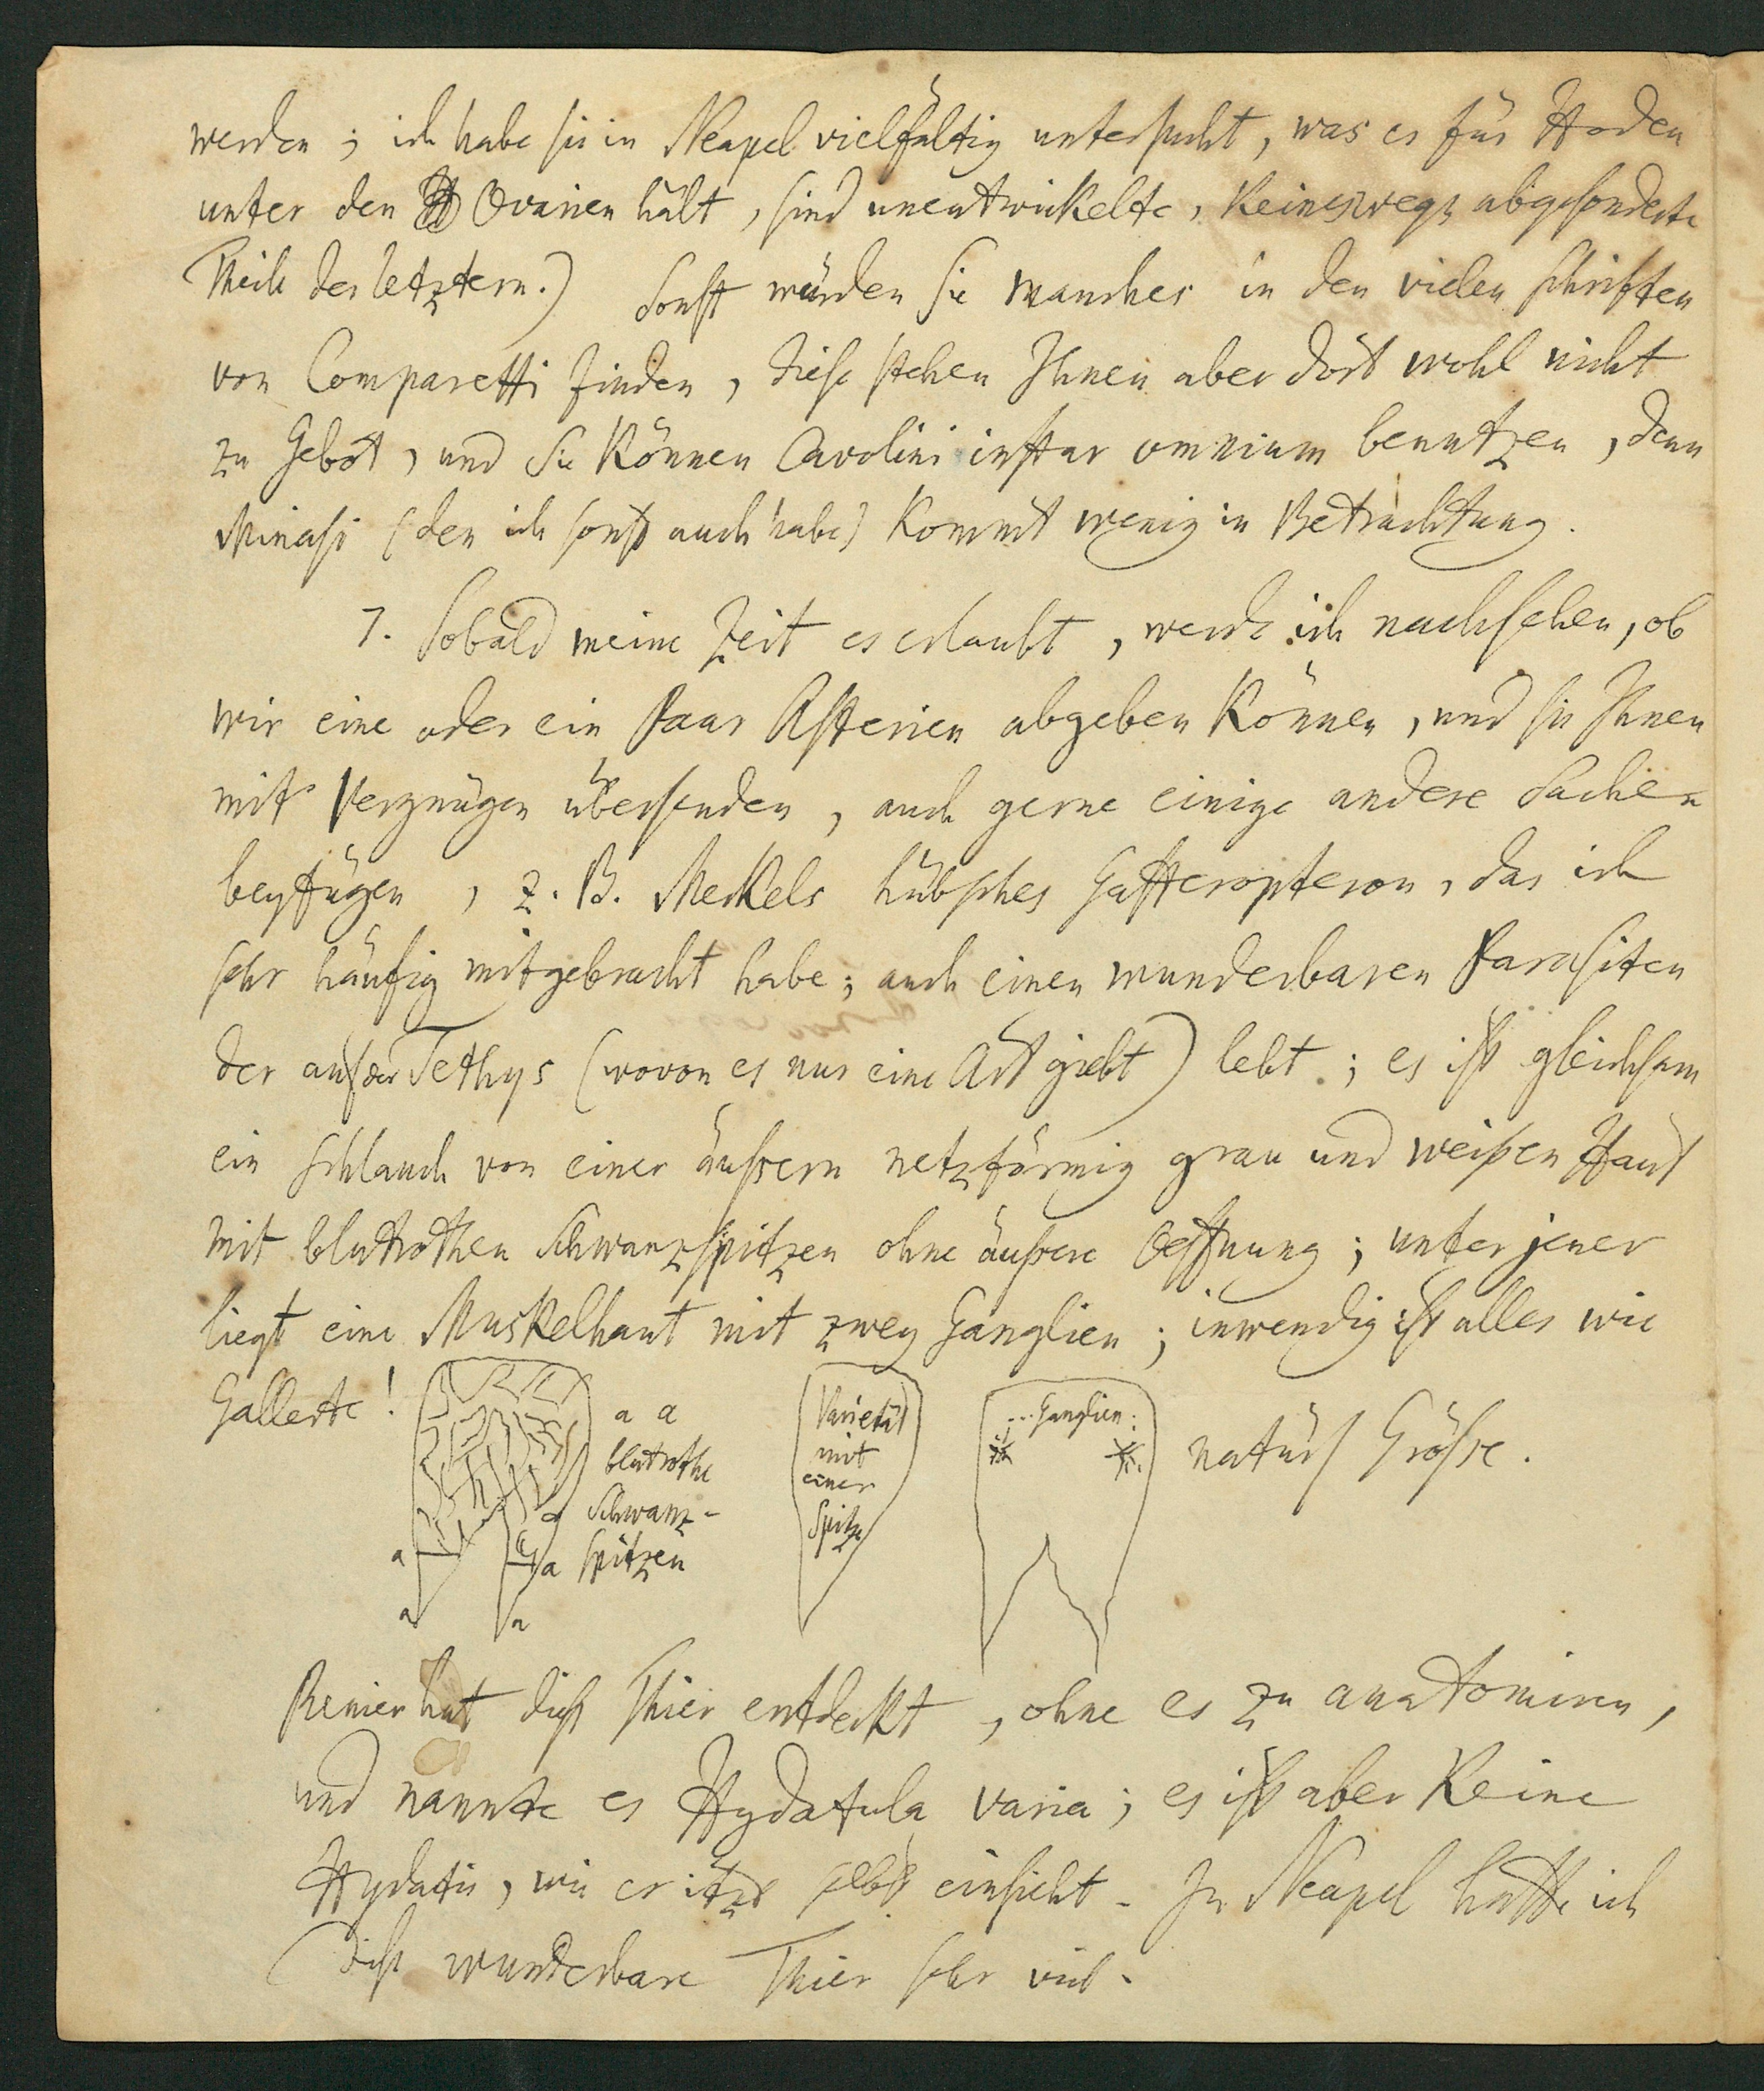 werden; ich habe sie in Neapel vielfältig untersucht, was er für Hoden
unter den Ovarien hält, sind unentwickelte, keineswegs abgesonderte
Theile der letztern.) Sonst würden Sie manches in den vielen Schriften
von Comparetti finden, diese stehen Ihnen aber dort wohl nicht
zu Gebot, und Sie können Cavolini instar omnium benutzen, denn
Minasi (den ich sonst auch habe) kommt wenig in Betrachtung.
7. Sobald meine Zeit es erlaubt, werde ich nachsehen, ob
wir eine oder ein Paar Asterien abgeben können, und sie Ihnen
mit Vergnügen übersenden, auch gerne einige andere Sachen
beyfügen, z. B. Meckels hübsches Gasteropteron, das ich
sehr häufig mitgebracht habe; auch einen wunderbaren Parasiten
der auf der Tethys (wovon es nur eine Art giebt) lebt; es ist gleichsam
ein Schlauch von einer äußern netzförmig grau und weißen Haut
mit blutrothen Schwanzspitzen ohne äußere Oeffnung; unter jener
liegt eine Muskelhaut mit zwey Ganglien; inwendig ist alles wie
Gallerte!
a a
blutrothe
Schwanz-
spitzen
a
a
a
a
Varietät
mit
einer
Spitze
... Ganglien.
natürl Größe.
Renier hat dieß Thier entdeckt, ohne es zu anatomiren,
und nannte es Hydatula varia; es ist aber keine
Hydatis, wie er itzt selbst einsieht. In Neapel hatte ich
dieß wunderbare Thier sehr viel.